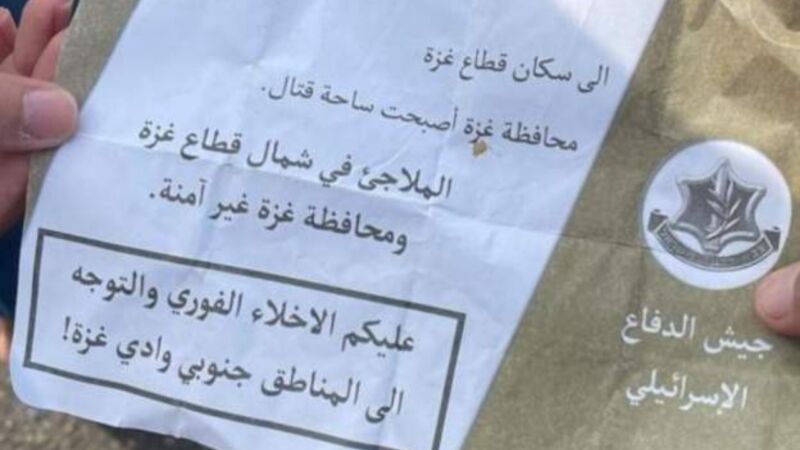 الى سكان قطاع غزة
محافظة غزة أصبحت ساحة قتال.
الملاجئ في شمال قطاع غزة
ومحافظة غزة غير آمنة.
عليكم الاخلاء الفوري والتوجه
الى المناطق جنوبي وادي غزة!
جيش الدفاع
الإسرائيلي